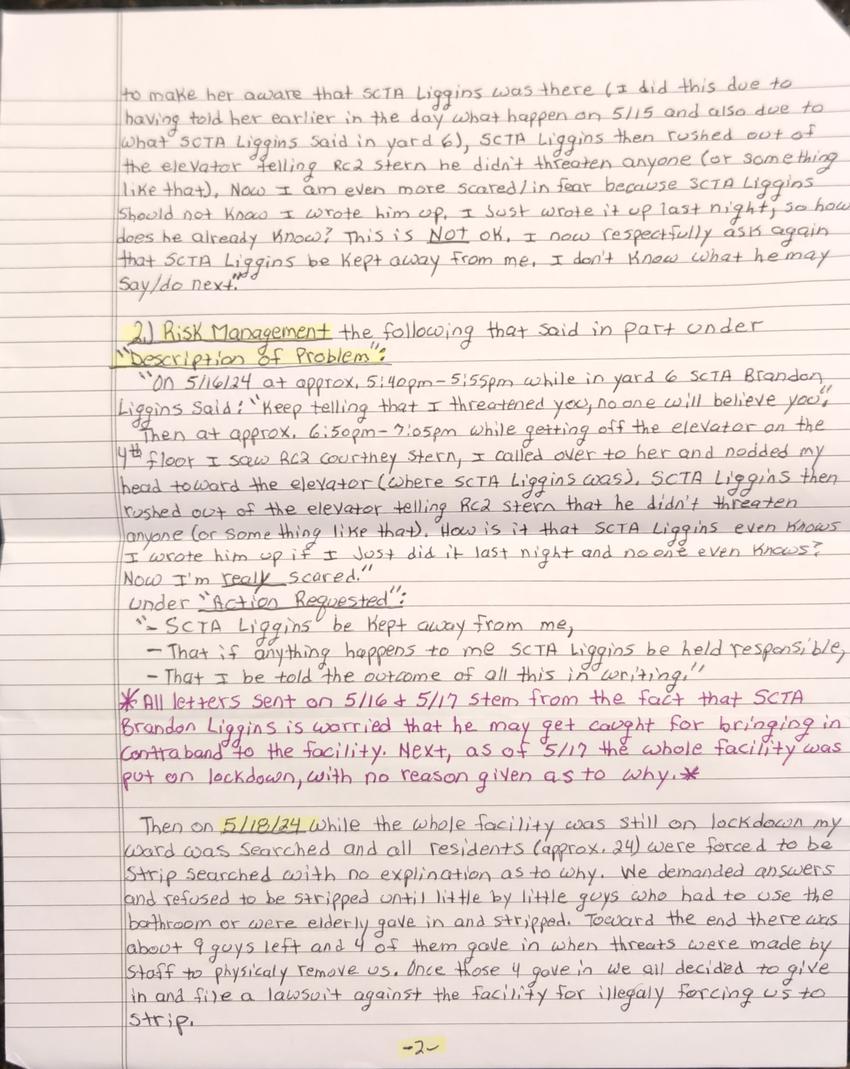 to make her aware that SCTA Liggins was there (I did this due to
having told her earlier in the day what happen on 5/15 and also due to
what SCTA Liggins said in yard 6), SCTA Liggins then rushed out of
the elevator telling RC2 Stern he didn't threaten anyone (or something
like that), Now I am even more scared/in fear because SCTA Liggins
should not know I wrote him up, I Just wrote it up last night, so how
does he already know? This is NOT ok, I now respectfully ask again
that SCTA Liggins be kept away from me, I don't know what he may
say/do next."
2.) Risk Management the following that said in part under
"Description of Problem":
"On 5/16/24 at approx, 5:40pm-5:55pm while in yard 6 SCTA Brandon
Liggins said: "Keep telling that I threatened you, no one will believe you".
Then at approx. 6:50pm-7:05pm while getting off the elevator on the
4th floor I saw RC2 Courtney Stern, I called over to her and nodded my
head toward the elevator (where SCTA Liggins was), SCTA Liggins then
rushed out of the elevator telling RC2 Stern that he didn't threaten
anyone (or some thing like that), How is it that SCTA Liggins even knows
I wrote him up if I Just did it last night and no one even knows?
Now I'm really scared."
under "Action Requested":
"- SCTA Liggins be kept away from me,
- That if anything happens to me SCTA Liggins be held responsible,
- That I be told the outcome of all this in writing."
*All letters sent on 5/16 & 5/17 stem from the fact that SCTA
Brandon Liggins is worried that he may get caught for bringing in
contraband to the facility. Next, as of 5/17 the whole facility was
put on lockdown, with no reason given as to why.*
Then on 5/18/24 while the whole facility was still on lockdown my
ward was searched and all residents (approx. 24) were forced to be
strip searched with no explination as to why. We demanded answers
and refused to be stripped until little by little guys who had to use the
bathroom or were elderly gave in and stripped. Toward the end there was
about 9 guys left and 4 of them gave in when threats were made by
staff to physicaly remove us. Once those 4 gave in we all decided to give
in and file a lawsuit against the facility for illegaly forcing us to
strip.
-2-